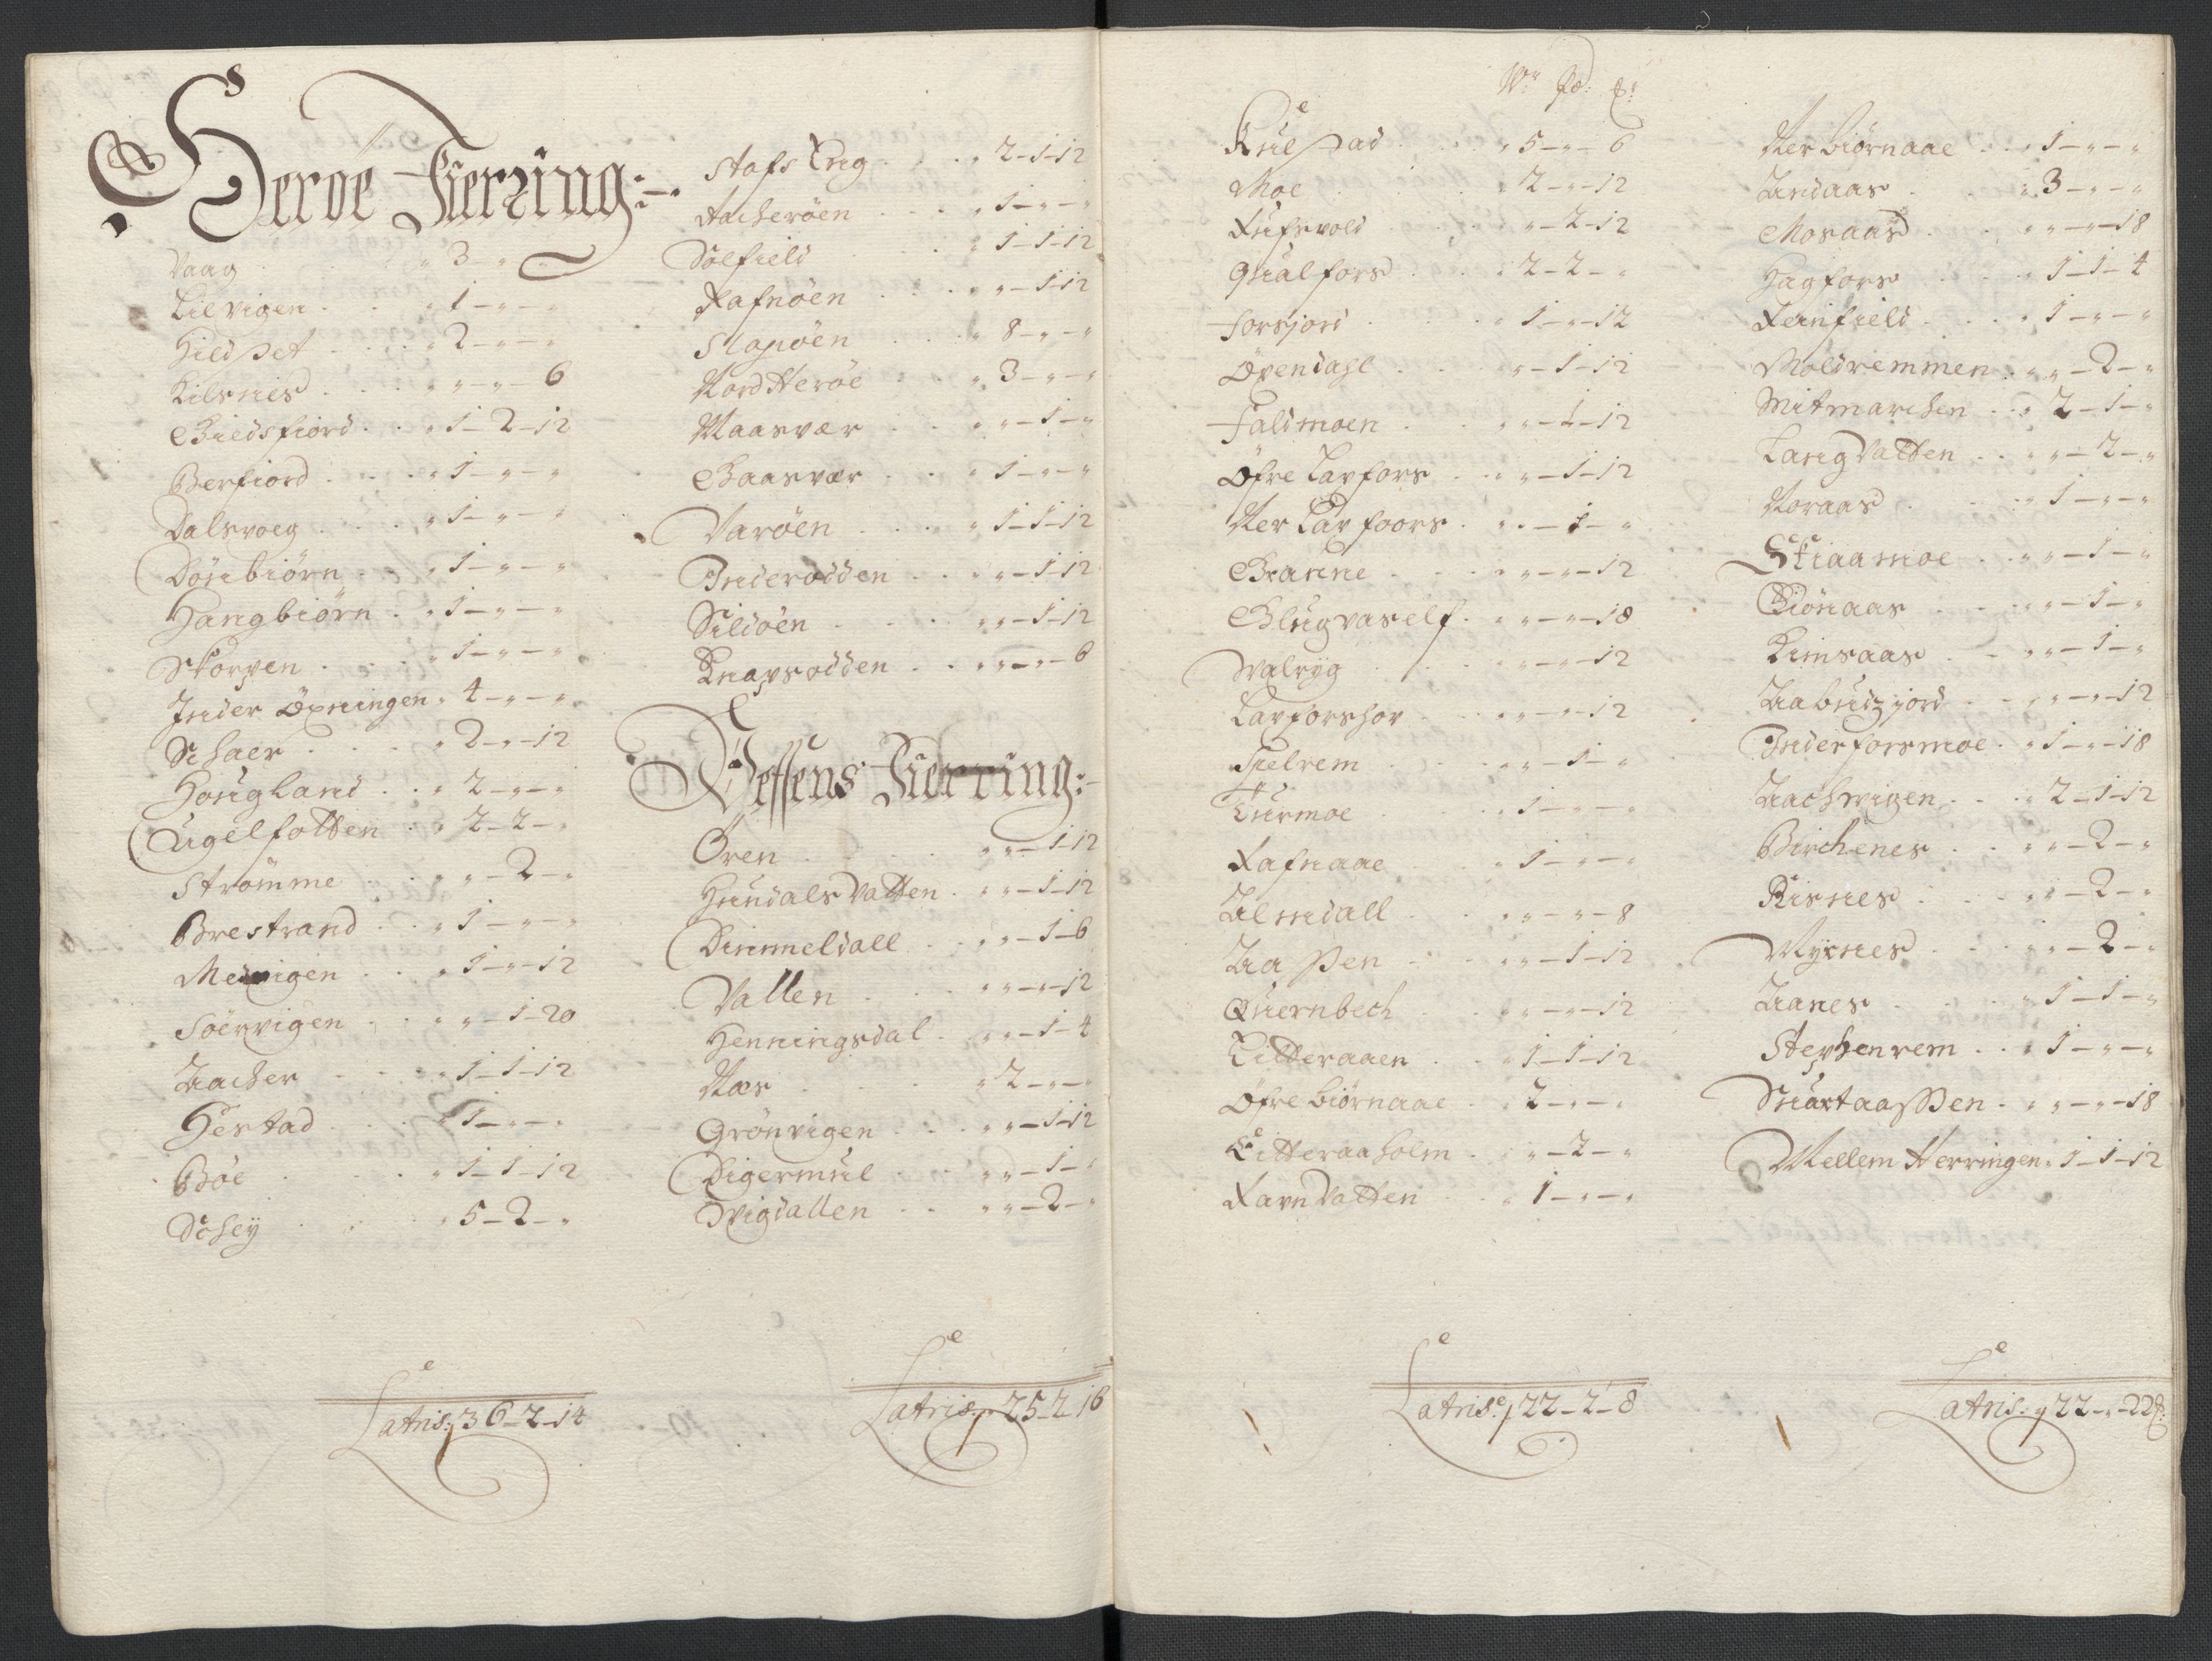 Herøe Fierring:
Vaag „ 3 - „ - „
Lilvigen „ 1 - „ - „
Hildset „ 2 - „ - „
Kilsnes „ „ - „ - 6
Gieidsfiord „ 1 - 2 - 12
Berfiord „ 1 - „ - „
Dalsvoeg „ 1 - „ - „
Dønbiørn „ 1 - „ - „
Hangbiørn „ 1 - „ - „
Skorpen „ 1 - „ - „
Inder Øxningen „ 4 - „ - „
Schaer „ 2 - „ - 12
Hougland „ 2 - „ - „
Ugelfotten „ 2 - 2 - „
Strømme „ „ - 2 - „
Brestrand „ 1 - „ - „
Medvigen „ 1 - „ - 12
Søervigen „ „ - 1 - 20
Aacher „ 1 - 1 - 12
Hestad „ 1 - „ - „
Bøe „ 1 - 1 - 12
Dchey „ 5 - 2 - „
Latris: 36 - 2 - 14
Stafs Eng „ 2 - 1 - 12
Aacherøen „ 1 - „ - „
Sølfield „ 1 - 1 - 12
Rafnøen „ „ - 1 - 12
Slapøen „ 8 - „ - „
Nord Herøe „ 3 - „ - „
Maasvær „ „ - 1 - „
Gaasvær „ 1 - „ - „
Varøen „ 1 - 1 - 12
Inderødden „ „ - 1 - 12
Sildøen „ „ - 1 - 12
Knapsodden „ „ - „ - 6
Vefsens Fierring:
Øren „ „ - 1 - 12
Hundals Vatten „ „ - 1 - 12
Dimmeldall „ „ - 1 - 6
Vallen „ „ - „ - 12
Henningsdal „ „ - 1 - 4
Næs „ 2 - „ - „
Grønvigen „ „ - 1 - 12
Digermul „ „ - 1 - „
Dvigdallen „ „ - 2 - „
Latris: 25 - 2 - 16
W: Pd: ℔:
Kulstad „ 5 - „ - 6
Moe „ 2 - „ - 12
Fufsvold „ „ - 2 - 12
Qualfors „ 2 - 2 - „
Forsjord „ 1 - „ - 12
Øxendahl „ „ - 1 - 12
Faldmoen „ „ - 1 - 12
Øfre Laxfors „ „ - 1 - 12
Ner Lax foors „ „ - 1 - „
Granne „ „ - „ - 12
Glugvaself „ „ - „ - 18
Walryg „ „ - „ - 12
Laxforshov „ „ - „ - 12
Spelrem „ „ - 1 - „
Turmoe „ 1 - „ - „
Rafnaae „ 1 - „ - „
Almdall „ „ - „ - 8
Aaspen „ „ - 1 - 12
Quernbech „ „ - „ - 12
Litteraaen „ 1 - 1 - 12
Øfre Biørnaae „ 2 - „ - „
Litteraaholm „ „ - 2 - „
Ravn Vatten „ 1 - „ - „
Latris: 22 - 2 - 8
Ner Biørnaae „ 1 - „ - „
Andaas „ 3 - „ - „
Mosaas „ „ - „ - 18
Hagfors „ 1 - 1 - 4
Reinfield „ 1 - „ - „
Moldremmen „ „ - 2 - „
Mitmarchen „ 2 - 1 - „
Lang Vatten „ „ - 2 - „
Noraas „ 1 - „ - „
Skiaamoe „ „ - 1 - „
Biønaas „ „ - 1 - „
Kimsaas „ „ - 1 - „
Aabudzjord „ „ - „ - 12
Inderforsmoe „ 1 - „ - 18
Aachvigen „ 2 - 1 - 12
Birchenes „ „ - 2 - „
Risnes „ „ - 2 - „
Myrnes „ „ - 2 - „
Aanes „ 1 - 1 - „
Stephenrem „ 1 - „ - „
Suartaaspen „ „ - „ - 18
Mellem Herringen „ 1 - 1 - 12
Latris: 22 - „ - 22 ℔: